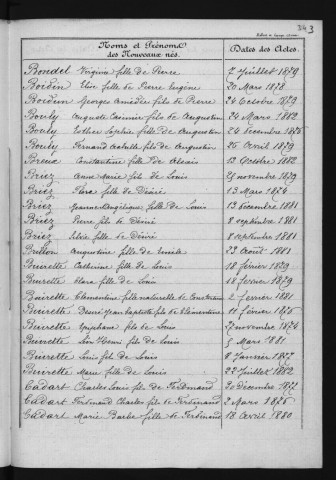 343
Noms et Prénoms
des Nouveaux nés.
Dates des Actes.
Bondel Virginie fille de Pierre 7 Juillet 1879
Boidin Elise fille de Pierre Eugène 20 Mars 1878
Boidin Georges Amédée fils de Pierre 24 Octobre 1879
Bouly Auguste Casimir fils de Augustin 24 Mars 1882
Bouly Sophie fille de Augustin 24 Décembre 1875
Bouly Fernand fils de Augustin 25 Avril 1879
Constantine fille de 13 Octobre 1882
Briez Anne Marie fille de Louis 25 novembre 1879
Briez Flora fille de Désiré 13 Mars 1874
Briez Jeanne Angélique fille de Louis 13 décembre 1881
Briez Pierre fils de Désiré 8 septembre 1881
Briez fille de Désiré 8 septembre 1881
Augustine fille de Emile 23 Août 1881
Burette Catherine fille de Louis 18 février 1879
Burette Clara fille de Louis 18 février 1879
Burette Clémentine fille naturelle de Constance 2 février 1881
Burette Désiré Jean baptiste fils de Clémentine 11 février 1876
Burette Epiphane fils de Louis 27 novembre 1874
Burette Léon Henri fils de Louis 5 Mars 1881
Burette Louis fils de Louis 8 Janvier 1877
Burette Marie fille de Louis 22 Juillet 1882
Cadart Charles Louis fils de Ferdinand 30 Décembre 1877
Cadart Ferdinand Charles fils de Ferdinand 2 Mars 1875
Cadart Marie Barbe fille de Ferdinand 18 Avril 1880